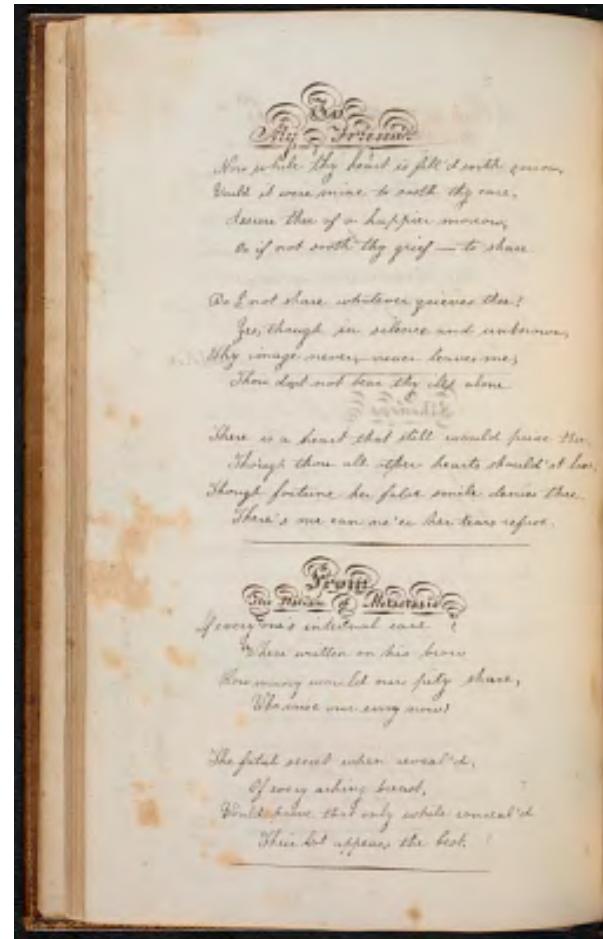 To
My Friend
Now while thy heart is fill'd with sorrow,
Would it were mine to sooth thy care,
Assure thee of a happier morrow,
Or if not sooth thy grief — to share
Do I not share whatever grieves thee?
Yes, though in silence and unknown,
Thy image never, never leaves me,
Thou dost not bear thy ills alone
There is a heart that still would prize thee
Though thou all other hearts should'st lose,
Though fortune her false smile denies thee
There's one can ne'er her tears refuse.
From
The Italian of Metastasio
If every one's internal care
Where written on his brow
How many would our pity share,
Who move our envy now!
The fatal secret when reveal'd,
Of every aching breast,
Would prove that only while conceal'd
Their lot appears the best.